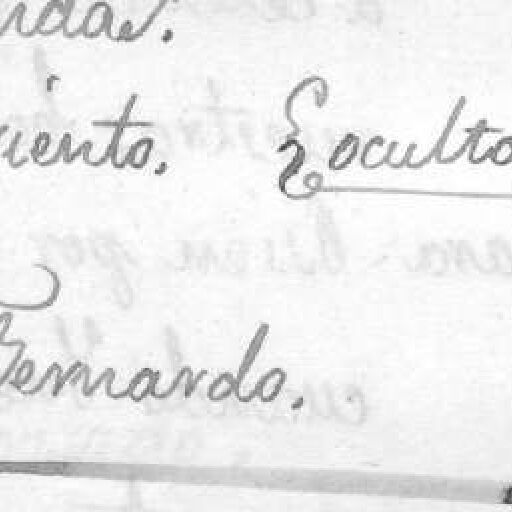 idas.
ciento. { oculto
Bernardo.